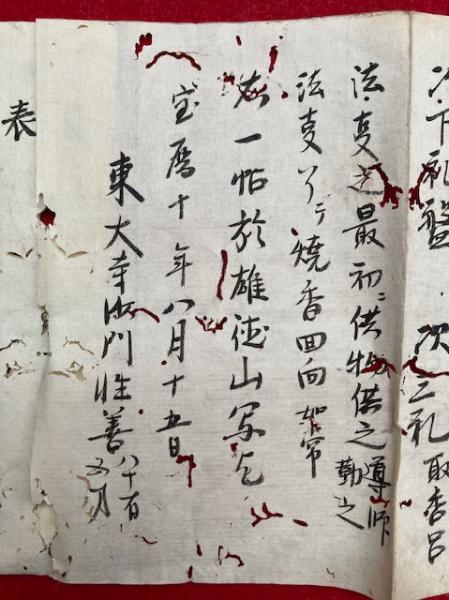 次下礼盤 次三礼取香呂
法叓之最初ニ供物供之導師勤之
法叓了テ焼香回向如常
右一帖於雄徳山写
宝暦十年八月十五日
東大寺沙門性善
表